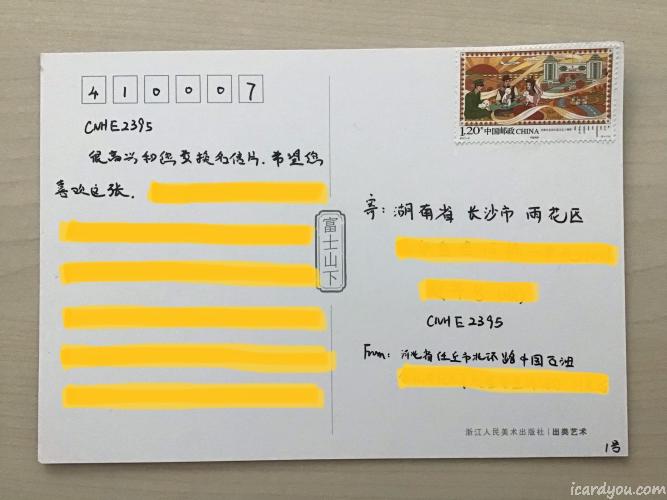 410007
CNHE2395
很高兴和您交换名信片.希望您
喜欢这张.
富士山下
1.20元 中国邮政 CHINA
寄: 湖南省 长沙市 雨花区
CNHE2395
From: 河北省任丘市北环路中国石油
浙江人民美术出版社 | 出类艺术
1号
icardyou.com